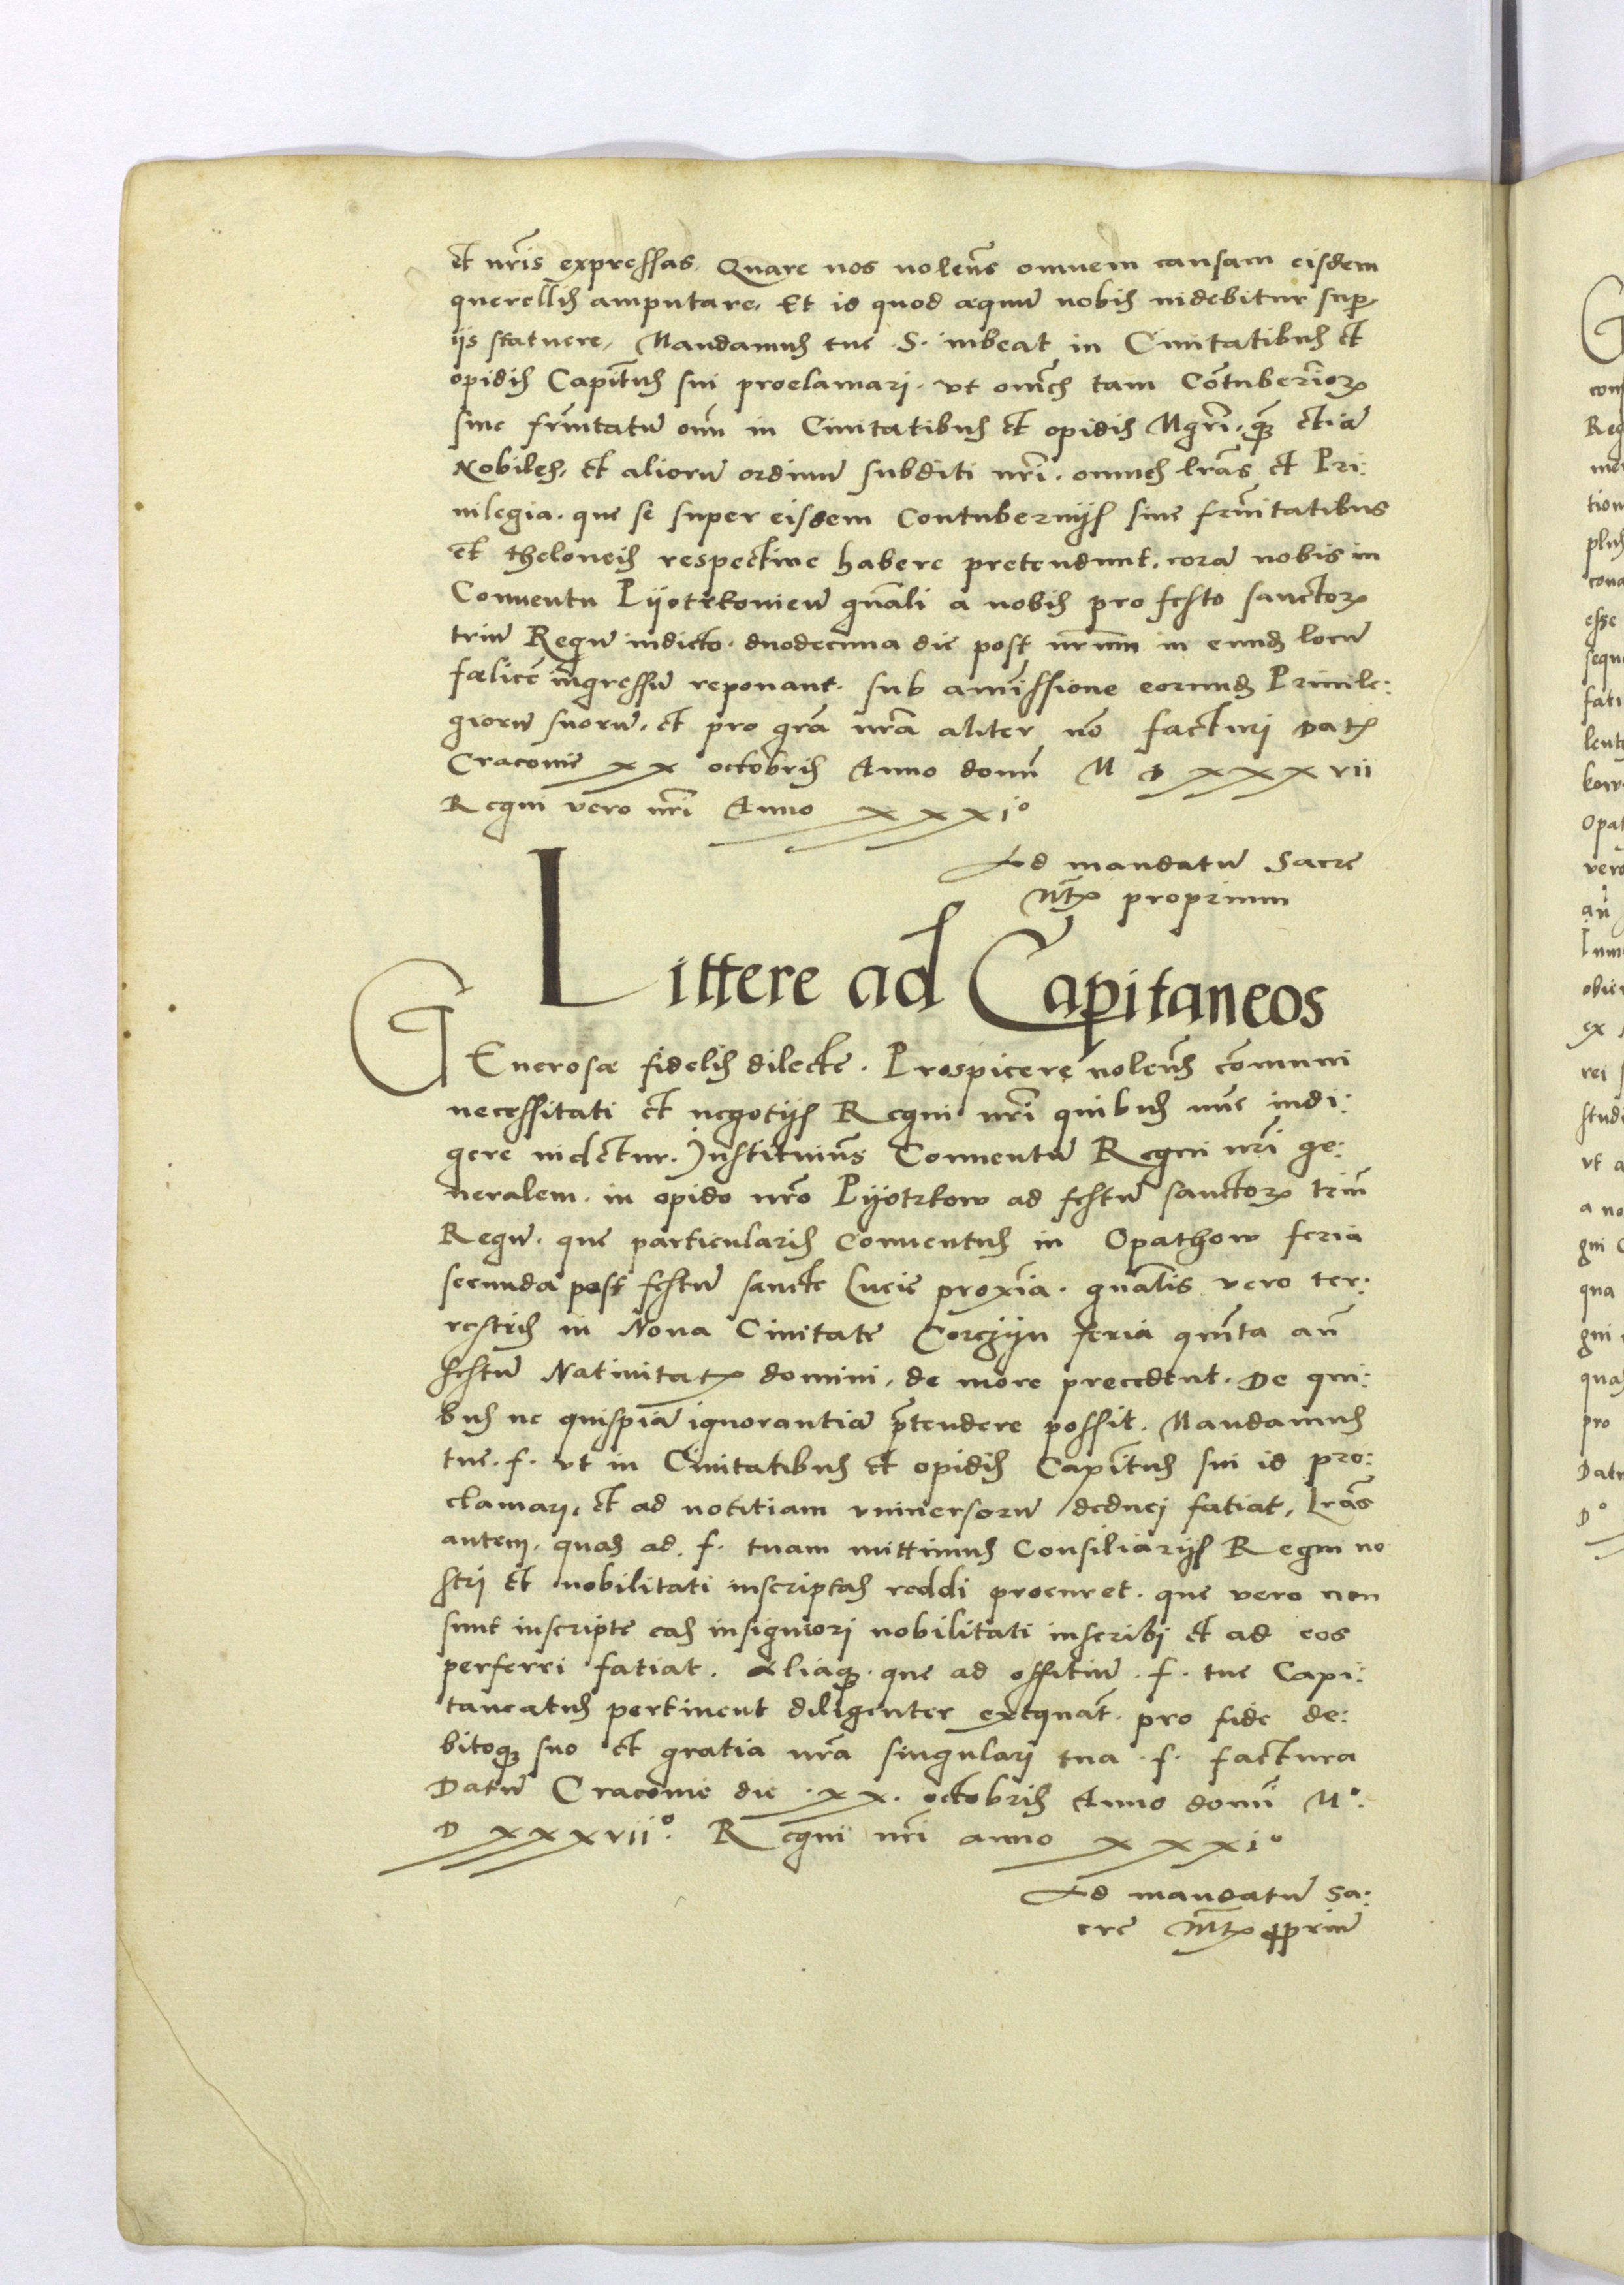 et nr̃is expressas. Quare nos uolen̄s omnem causam eisdem
querellis amputare. Et id quod aequū nobis uidebitur sup
ijs statuere. Mandamus tue S. iubeat in Ciuitatibus et
opidis Capit̄us sui proclamari. vt om̄es tam Cōtuberniorꝝ
siue fr̄nitatū om̄ in Ciuitatibus et opidis Mgr̄i. quā etiā
Nobiles, et aliorū ordinū subditi nr̃i. omnes lr̄as et Pri:
uilegia. que se super eisdem Contubernijs siue fr̄nitatibus
et theloneis respectiue habere pretendunt. corā nobis in
Conuentu Pijotrkouien̄ gn̄ali a nobis pro festo sanctorꝝ
triū Regū indicto. duodecima die post nr̄um in eundē locū
faelicē ingressū reponant. sub amissione eorundē Priuile:
giorū suorū. et pro gr̄a nr̄a aliter nō facturi Datꝝ
Cracouie xx octobris Anno domī M D xxxvii
Regni vero nr̃i Anno xxxi°
Ad mandatū Sacre
Mt̄ꝝ proprium
Littere ad Capitaneos
GEnerosae fidelis dilecte. Prospicere uolen̄s cōmuni
necessitati et negotijs Regni nr̃i quibus nūc indi:
gere uidetur. Instituim̄s Conuentū Regni nr̃i ge:
neralem. in opido nr̄o Pijotrkow ad festū sanctorꝝ triū
Regū. que particularis Conuentus in Opathow feria
secunda post festū sancte Lucie proxīa. gn̄alis vero ter:
restris in Noua Ciuitate Corczijn feria quīta an̄
festū Natiuitatꝝ domini, de more precedent. De qui:
bus ne quispiā ignorantiā p̄tendere possit. Mandamus
tue. f. vt in Ciuitatibus et opidis Capit̄us sui id pro:
clamarj, et ad notitiam vniuersorū deducj fatiat, Lr̄as
autem, quas ad. f. tuam mittimus Consiliarijs Regni no
strj et nobilitati inscriptas reddi procuret. que vero non
sunt inscripte eas insigniorj nobilitati inscribj et ad eos
perferri fatiat. Aliaqꝫ que ad offitiū. f. tue Capi:
taneatus pertinent diligenter exequāt. pro fide de:
bitoqꝫ suo et gratia nr̄a singularj tua. f. factura
Datū Cracouie die .xx. octobris Anno domī M°.
D xxxvii°. Regni nr̃i anno xxxi°
Ad mandatū Sa:
cre Mt̄ꝝ ꝓpriū